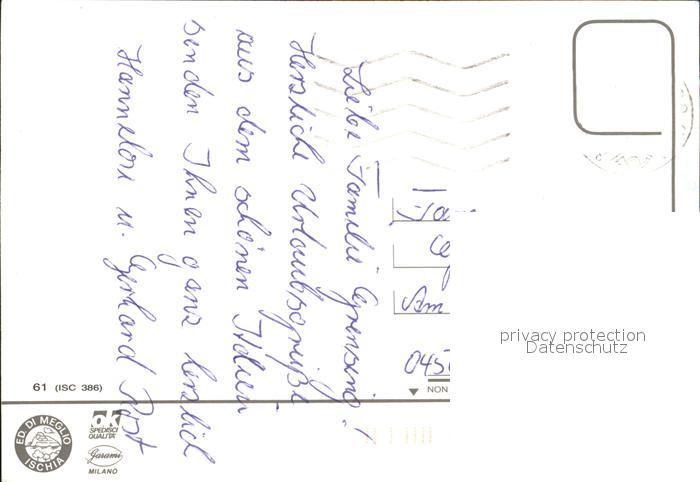 Liebe Familie Grensing!
Herzliche Urlaubsgrüße
aus dem schönen Italien
senden Ihnen ganz herzlich
Hannelore u. Gerhard Post
Am
045
NON
61 (ISC 386)
ED. DI MEGLIO
ISCHIA
OK
SPEDISCI
QUALITA'
Garami
MILANO
privacy protection
Datenschutz